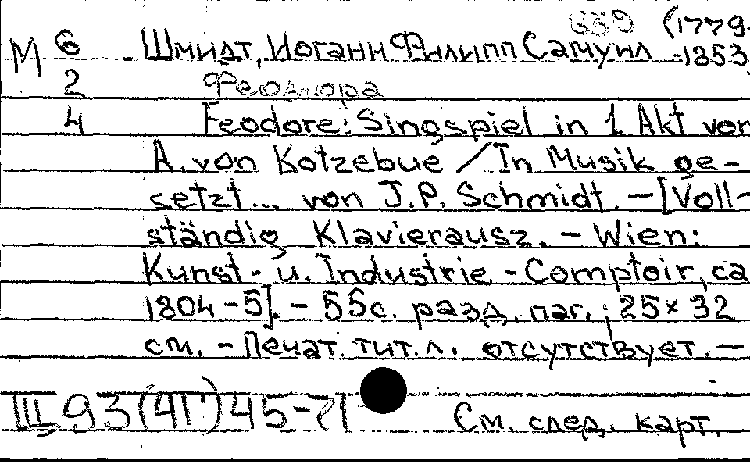 639 (1779-
М 6 Шмидт, Иоганн Филипп Самуил -1853
2 Феодора
4 Feodore: Singspiel in 1 Akt von
A. von Kotzebue / In Musik ge-
setzt... von J.P. Schmidt. – [Voll-
ständig Klavierausz. – Wien:
Kunst- u. Industrie - Comptoir, ca
1804-5]. – 55 с. разд. паг.; 25×32
см. – Печат. тит. л. отсутствует. –
Ш 93(4Г) 45-71 См. след. карт.